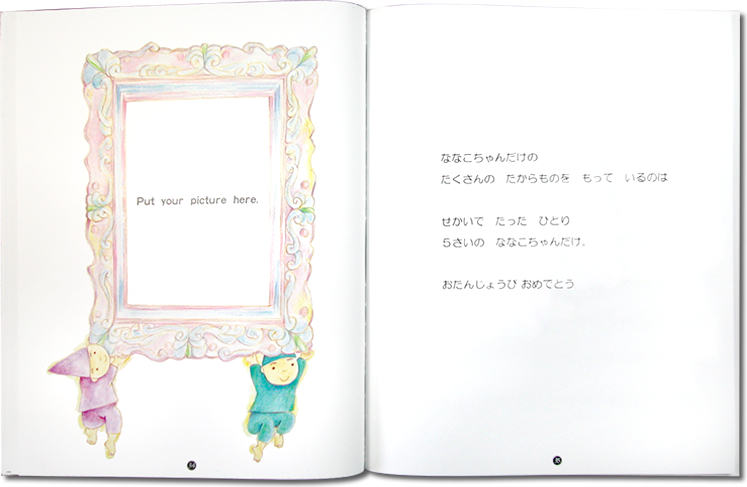 Put your picture here.
34
ななこちゃんだけの
たくさんの たからものを もって いるのは
せかいで たった ひとり
5さいの ななこちゃんだけ。
おたんじょうび おめでとう
35